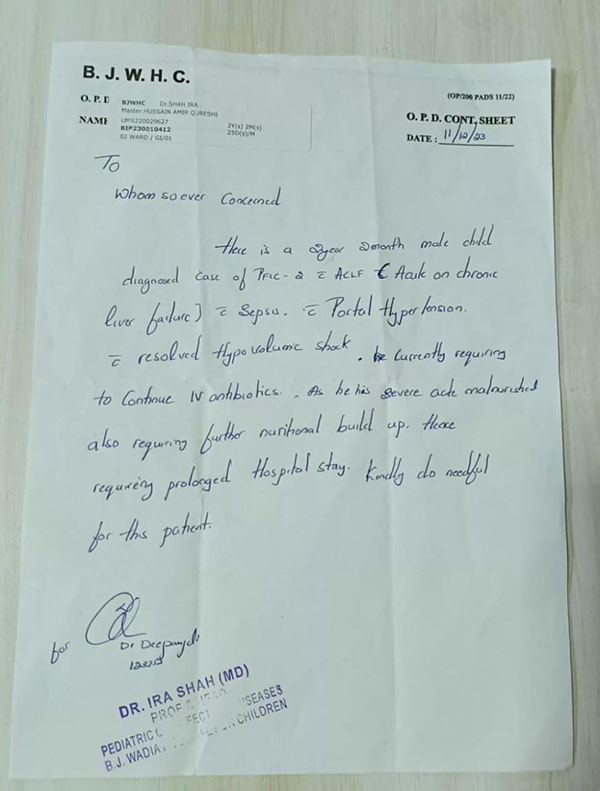 B. J. W. H. C.
(OP/200 PADS 11/22)
O. P. D
BJWHC Dr.SHAH IRA
Master HUSSAIN AMIR QURESHI
NAME
UMR220029627 2Y(s) 2M(s)
BIP230010412 25D(s)/M
GI WARD / GI/01
O. P. D. CONT. SHEET
DATE : 11/12/23
To
Whom so ever Concerned
Here is a 2year 2month male child
diagnosed case of PFIC-2 c̄ ACLF (Acute on chronic
liver failure) c̄ Sepsis. c̄ Portal Hypertension.
c̄ resolved Hypovolumic shock. he Currently requiring
to Continue IV antibiotics. As he his severe acute malnourished
also requiring further nutritional build up. Hence
requiring prolonged Hospital stay. Kindly do needful
for this patient.
for
Dr Deepanjali
DR. IRA SHAH (MD)
PROF
PEDIATRIC DISEASES
B.J. WADIA CHILDREN